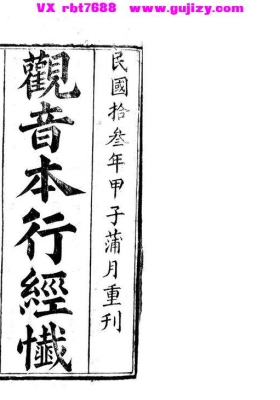 VX rbt7688 www.gujizy.com
民國拾叁年甲子蒲月重刊
觀音本行經懺